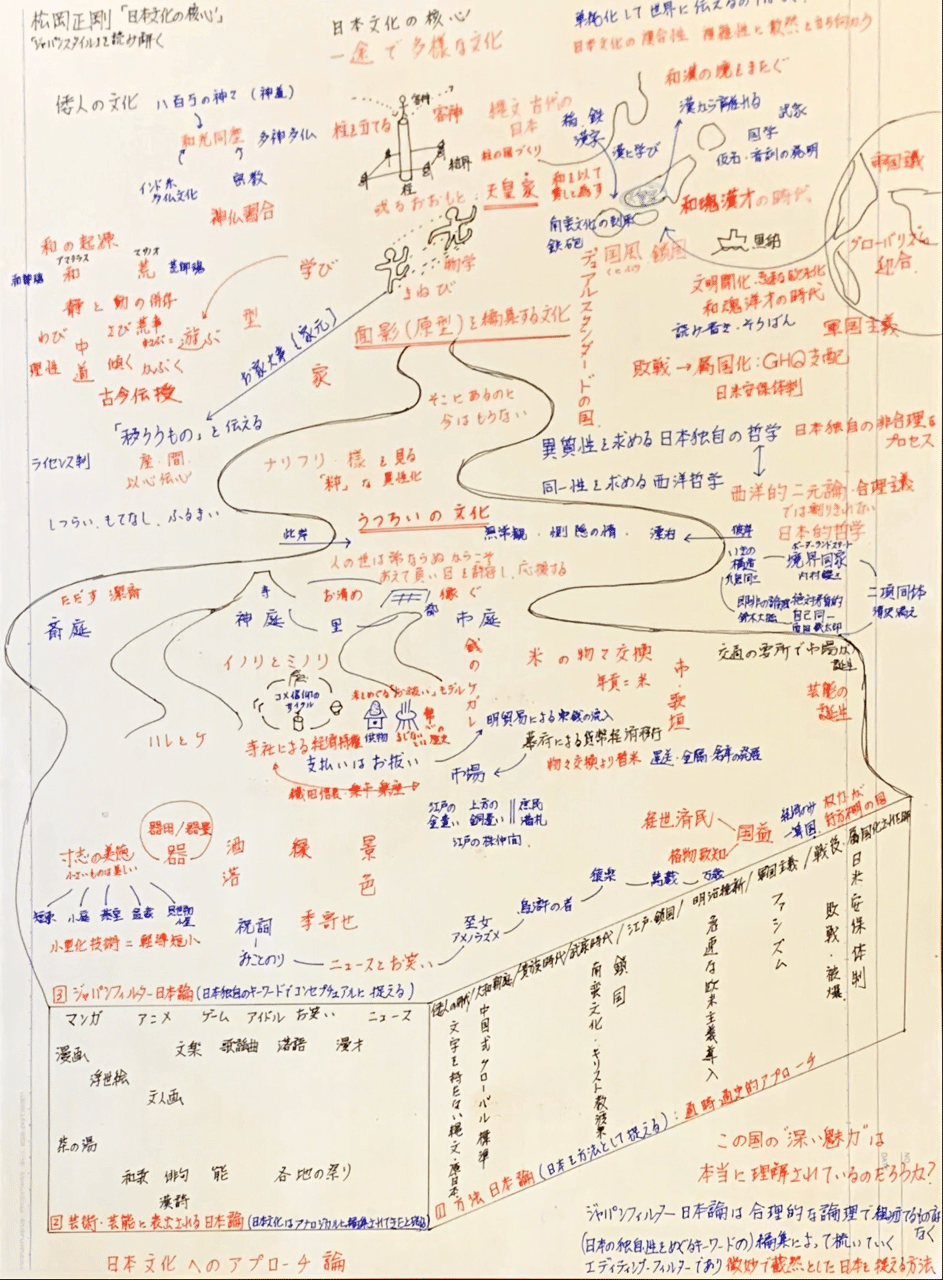 松岡正剛「日本文化の核心」
「ジャパンスタイル」を読み解く
日本文化の核心
一途で多様な文化
単純化して世界に伝えるのでは
日本文化の複合性 複雑性に敢然と立ち向かう
倭人の文化 八百万の神々(神道)
和光同塵 多神タイム
インド系
タイム文化
密教
神仏習合
柱を立てる
客神
客神
結界
柱
縄文 古代の
日本
柱の国づくり
稲・鉄
漢字
漢に学び
和漢の境をまたぐ
漢から離れる
武家
国学
仮名・音訓の発明
和を以て
貴しと為す
或るおおもと 天皇家
南蛮文化の到来
鉄砲
国風 鎖国
和魂漢才の時代
黒船
デュアルスタンダードの国
文明開化・急速な欧米化
和魂洋才の時代
読み書き・そろばん
帝国主義
グローバリズム
迎合
軍国主義
敗戦→属国化:GHQ支配
日米安保体制
和の起源
和御魂 アマテラス 和 荒 荒御魂
静と動の併存
わび 中 さび 荒事
遊ぶ
理性 道 傾く かぶく
古今伝授
学び
物学
まねび
型
家
お家大事(家元)
面影(原型)を編集する文化
そこにあるのに
今はもうない
「移ろうもの」を伝える
ライセンス制
産・間
以心伝心
ナリフリ・様を見る
「粋」な異性化
しつらい、もてなし、ふるまい
異質性を求める日本独自の哲学
同一性を求める西洋哲学
日本独自の非合理な
プロセス
西洋的二元論・合理主義
では割りきれない
日本的哲学
此岸
うつろいの文化
無常観・惻隠の情・漂泊
彼岸
人の世は常ならぬならこそ
あえて負い目を許容し、応援する
いきの
構造
九鬼周三
ボーダーランドスタート
境界国家
内村鑑三
即非の論理
鈴木大拙
絶対矛盾的
自己同一
西田幾太郎
二項同体
清沢満之
ただす 潔斎
斎庭
寺
神庭
お清め
里
都
稼ぐ
市庭
イノリとミノリ
コメ信仰の
サイクル
米をめぐる「お祓い」モデル
供物
銭のケガレ
ハレとケ
寺社による経済特権
支払いはお祓い
織田信長・楽市楽座
米の物々交換
年貢=米
市・歌垣
交通の要所で市場が
誕生
芸能の
誕生
明貿易による宋銭の流入
幕府による貨幣経済移行
物々交換より替米 運送・金属・倉庫の発展
市場
江戸の
金遣い
上方の
銀遣い
庶民
藩札
江戸の株仲間
経世済民
国益
格物致知
経済のみ
一等国
権力が
行方不明の国
寸志の美徳
小さいものは美しい
器用/器量
器
酒
落
縁
景
色
短歌 小屋 茶室 盆栽
小型化技術=軽薄短小
季寄せ
祝詞
みことのり
ニュースとお笑い
巫女
アメノウズメ
烏滸の者
猿楽
萬歳
万歳
③ ジャパンフィルター日本論(日本独自のキーワードでコンセプチュアルに捉える)
マンガ アニメ ゲーム アイドル お笑い ニュース
漫画 文楽 歌謡曲 落語 漫才
浮世絵
文人画
茶の湯
和歌 俳句 能 各地の祭り
漢詩
② 芸術・芸能に表出される日本論(日本文化はアナロジカルに編集されてきたと捉える)
倭人の時代/大和朝廷/貴族時代/武家時代/江戸・鎖国/明治維新/軍国主義/戦後・属国化される日本
文字を持たない縄文・原日本
中国式グローバル標準
南蛮文化・キリスト教渡来
鎖国
急速な欧米主義導入
ファシズム
敗戦・被爆
日米安保体制
① 方法日本論(日本を方法として捉える):直時通史的アプローチ
日本文化へのアプローチ論
この国の"深い魅力"は
本当に理解されているのだろうか?
ジャパンフィルター日本論は合理的な論理で
なく
(日本の独自性をめぐるキーワードの)編集によって梳いていく
エディティング・フィルターであり微妙で截然とした日本を捉える方法